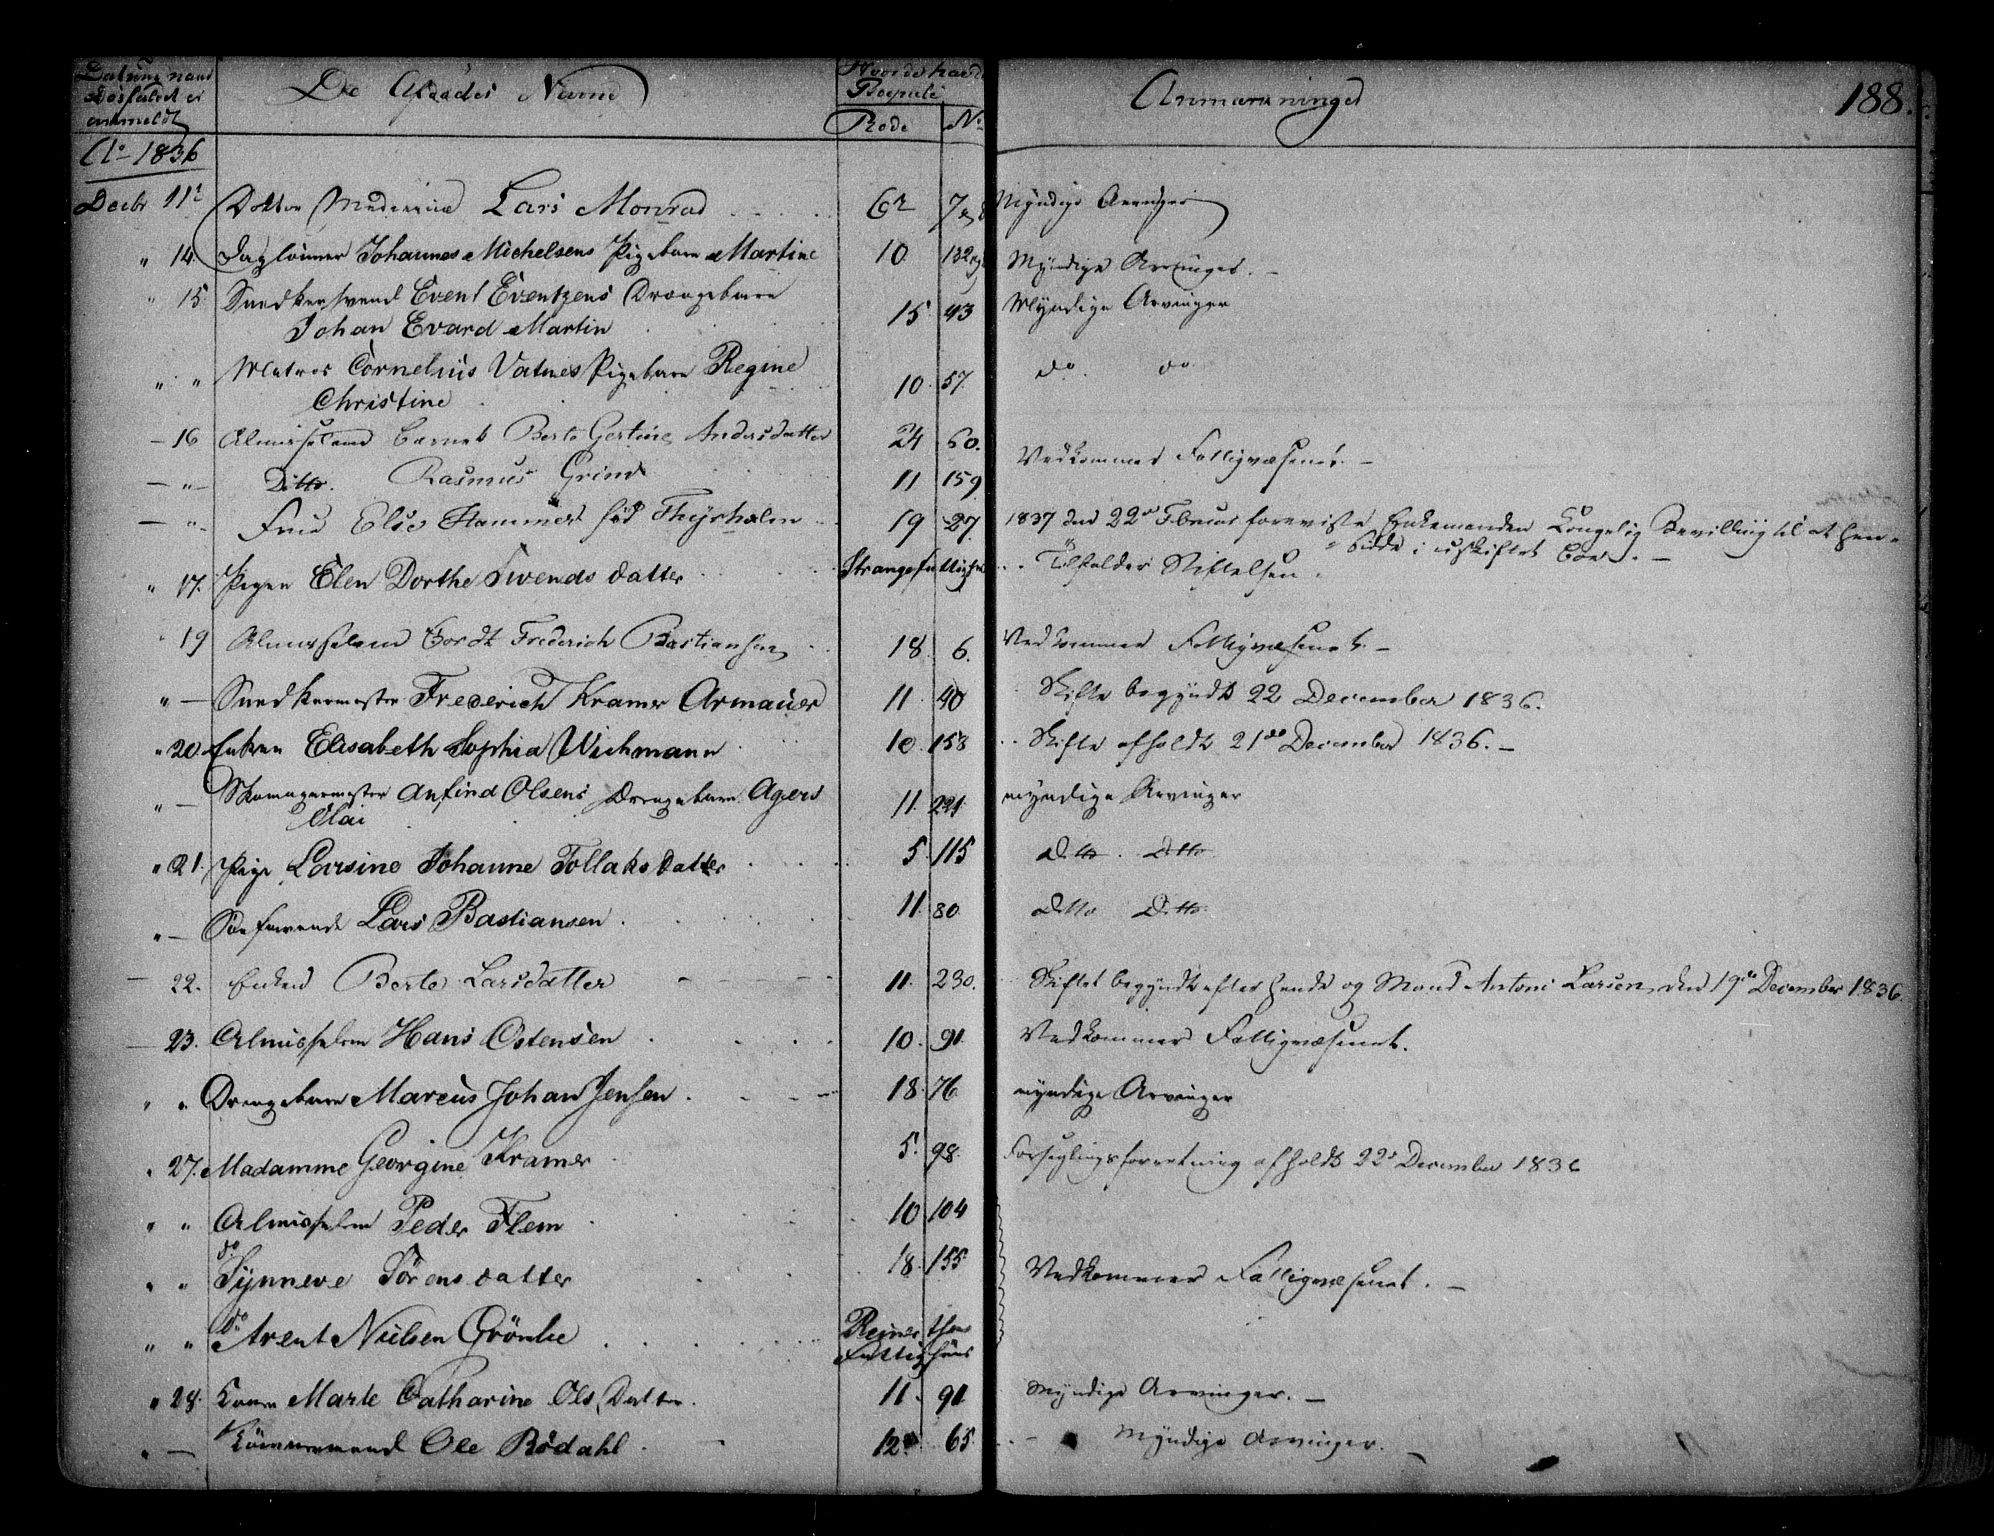 Datum naar Dødsfaldet er anmeldt
De Afdødes Navne
Hvor de havde Boepæl
Rode No
Anmærkninger
188.
Ao 1836
Decbr 11te Doktor Medicinæ Lars Monrad 6r 7 Myndige Arvinger
" 14 Daglønner Johannes Michelsens Pigebarn Martine 10 132 Myndige Arvinger. -
" 15 Snedkersvend Event Eventzens Drængebarn 15 43 Myndige Arvinger
Johan Evard Martin
" " Matros Cornelius Vatnes Pigebarn Regine 10. 57. do. do.
Christine
- 16 Almisselem Barnet Berte Gertine Andersdatter 24 60.
Vedkommer Fattigvæsenet. -
- " - Ditto. Rasmus Grind 11 159
- " - Frue Else Hammer fød Thyrholm 19 27. 1837 den 22de Februar foreviste Enkemanden Kongelig Bevilling til at hen-
sidde i uskiftet Boe. -
" 17. Pigen Elen Dorthe Svends datter Strangefattighuus Tilfalder Stiftelsen.
" 19 Almisselem Gordt Frederich Bastiansen 18 6. Vedkommer Fattigvæsenet. -
" - Snedkermester Frederich Kramer Armauer 11 40 Skifte begyndt 22 December 1836.
" 20. Enken Elisabeth Sophia Wichmann 10 158 Skifte afholdt 21de December 1836. -
" - Skomagermester Anfind Olsens Drengebarn Agers 11 221 myndige Arvinger
Olai
" 21. Pige Larsine Johanne Tollaksdatter 5. 115 Ditto. Ditto.
" - Søefarende Lars Bastiansen 11 80 Ditto Ditto.
- 22. Enken Berte Larsdatter 11. 230. Skiftet begyndt efter hende og Mand Antoni Larsen, den 19de December 1836.
23. Almisselem Hans Ostensen 10. 91. Vedkommer Fattigvæsenet.
" " Drengebarn Marcus Johan Jensen. 18 76 myndige Arvinger
" 27. Madamme Georgine Kramer 5. 98. Forseglingsforretning afholdt 22de December 1836
" " Almisselem Peder Flem 10 104
" " do Synneve Sörensdatter 18. 155 Vedkommer Fattigvæsenet. -
" " do Arent Nielsen Grönlie Reimerthens Fattighuus
" 28. Konen Marte Catharine Ols Datter. 11. 91 Myndige Arvinger. -
" - Tømmermand Ole Rödahl 12. 65 Myndige Arvinger. -